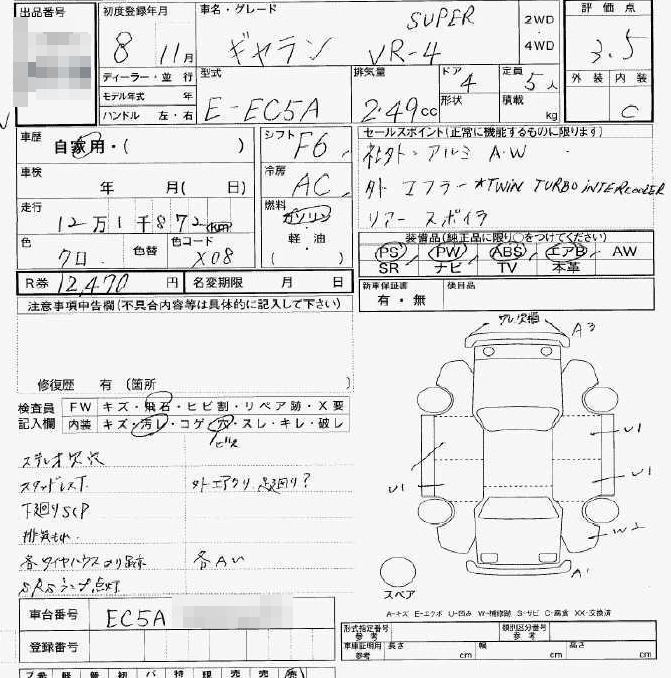 出品番号
初度登録年月
8 11月
車名・グレード
ギャラン VR-4 SUPER
2WD
・
4WD
評価点
3.5
ディーラー・並行
モデル年式 年
ハンドル 左・右
型式
E-EC5A
排気量
2.49cc
ドア
4
形状
定員
5人
積載
kg
外装 内装
C
車歴
自家用・( )
シフト
F6
セールスポイント(正常に機能するものに限ります)
社外・アルミ A・W
外 エフラー *TWIN TURBO INTERCOOLER
リアー スポイラ
車検
年 月( 日)
冷房
AC
走行
12万1千872km
燃料
ガソリン
・
軽・油
( )
色
クロ
色替
色コード
X08
装備品(純正品に限り○をつけてください)
PS PW ABS エアB AW
SR ナビ TV 本革
R券 12,470円
名変期限 月 日
新車保証書
有・無
後日品
注意事項申告欄(不具合内容等は具体的に記入して下さい)
修復歴 有 (箇所 )
検査員
記入欄
FW キズ・飛石・ヒビ割・リペア跡・X要
内装 キズ・汚レ・コゲ・穴・スレ・キレ・破し
ビス
ステレオ欠穴
スタッドレスT.
外エアクリ
下廻りSCP
排気もれ
各タイヤハウスのり跡
各AU
SRSランプ点灯
A3
U1
U1
U1
W2
A1
スペア
A-キズ E-エクボ U-凹み W-補修跡 S-サビ C-腐食 XX-交換済
車台番号
EC5A
登録番号
形式指定番号
参考
類別区分番号
参考
車庫証明用
参考
長さ cm
幅 cm
高さ cm